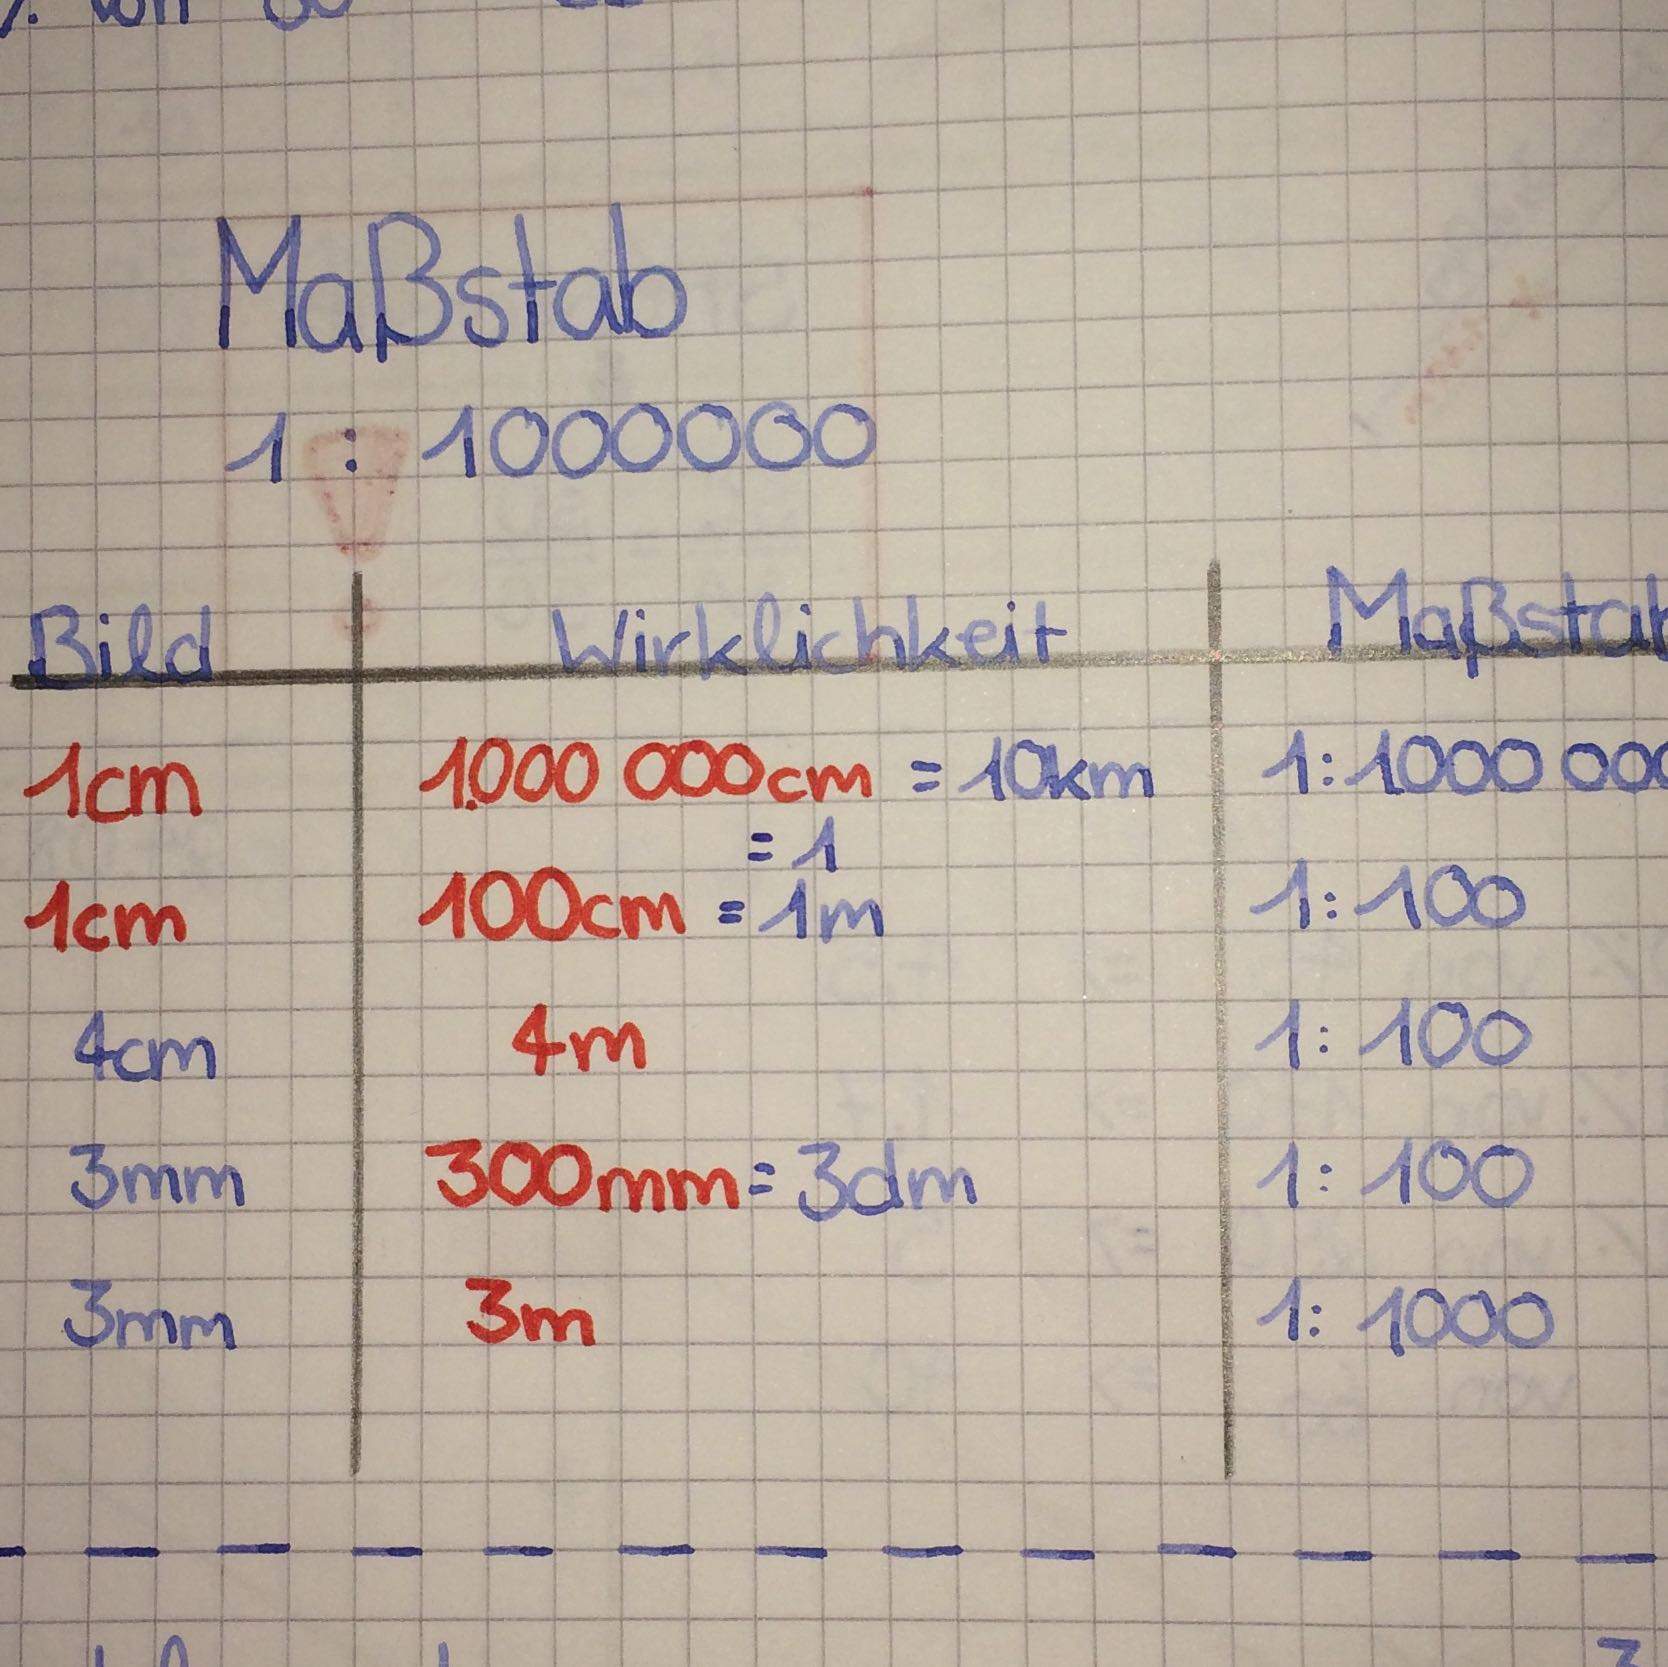 von
Maßstab
1 : 1000000
Bild Wirklichkeit Maßstab
1cm 1.000 000cm = 10km 1:1000 000
= 1
1cm 100cm = 1m 1:100
4cm 4m 1: 100
3mm 300mm = 3dm 1: 100
3mm 3m 1: 1000